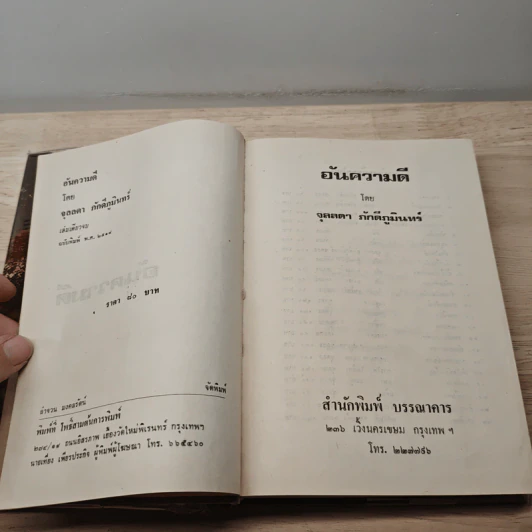 อันความดี
โดย
จุลลดา ภักดีภูมินทร์
เล่มเดียวจบ
ฉบับพิมพ์ พ.ศ.
ราคา ๘๐ บาท
จัดพิมพ์
อำนวน มงคลรัตน์
พิมพ์ที่ โพธิ์สามต้นการพิมพ์
ถนนอิสรภาพ เชิงวัดใหม่พิเรนทร์ กรุงเทพฯ
นายเที่ยง เพียรประกิจ ผู้พิมพ์ผู้โฆษณา โทร. ๖๖๕๔๖๐
อันความดี
โดย
จุลลดา ภักดีภูมินทร์
สำนักพิมพ์ บรรณาคาร
๒๓๖ เวิ้งนครเขษม กรุงเทพ ฯ
โทร. ๒๒๗๗๙๖